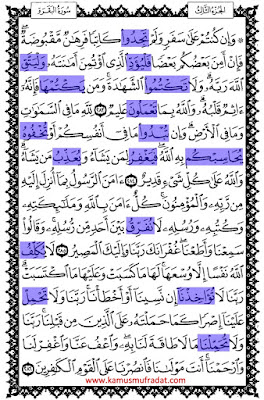 الجزء الثالث
سورة البقرة
وَإِن كُنتُمْ عَلَىٰ سَفَرٍ وَلَمْ تَجِدُوا كَاتِبًا فَرِهَٰنٌ مَّقْبُوضَةٌ
فَإِنْ أَمِنَ بَعْضُكُم بَعْضًا فَلْيُؤَدِّ الَّذِي اؤْتُمِنَ أَمَٰنَتَهُ وَلْيَتَّقِ
اللَّهَ رَبَّهُ وَلَا تَكْتُمُوا الشَّهَٰدَةَ وَمَن يَكْتُمْهَا فَإِنَّهُ
ءَاثِمٌ قَلْبُهُ وَاللَّهُ بِمَا تَعْمَلُونَ عَلِيمٌ ٢٨٣ لِّلَّهِ مَا فِي السَّمَٰوَٰتِ
وَمَا فِي الْأَرْضِ وَإِن تُبْدُوا مَا فِي أَنفُسِكُمْ أَوْ تُخْفُوهُ
يُحَاسِبْكُم بِهِ اللَّهُ فَيَغْفِرُ لِمَن يَشَاءُ وَيُعَذِّبُ مَن يَشَاءُ
وَاللَّهُ عَلَىٰ كُلِّ شَيْءٍ قَدِيرٌ ٢٨٤ ءَامَنَ الرَّسُولُ بِمَا أُنزِلَ إِلَيْهِ
مِن رَّبِّهِ وَالْمُؤْمِنُونَ كُلٌّ ءَامَنَ بِاللَّهِ وَمَلَٰئِكَتِهِ
وَكُتُبِهِ وَرُسُلِهِ لَا نُفَرِّقُ بَيْنَ أَحَدٍ مِّن رُّسُلِهِ وَقَالُوا
سَمِعْنَا وَأَطَعْنَا غُفْرَانَكَ رَبَّنَا وَإِلَيْكَ الْمَصِيرُ ٢٨٥ لَا يُكَلِّفُ
اللَّهُ نَفْسًا إِلَّا وُسْعَهَا لَهَا مَا كَسَبَتْ وَعَلَيْهَا مَا اكْتَسَبَتْ
رَبَّنَا لَا تُؤَاخِذْنَا إِن نَّسِينَا أَوْ أَخْطَأْنَا رَبَّنَا وَلَا تَحْمِلْ
عَلَيْنَا إِصْرًا كَمَا حَمَلْتَهُ عَلَى الَّذِينَ مِن قَبْلِنَا رَبَّنَا
وَلَا تُحَمِّلْنَا مَا لَا طَاقَةَ لَنَا بِهِ وَاعْفُ عَنَّا وَاغْفِرْ لَنَا
وَارْحَمْنَا أَنتَ مَوْلَىٰنَا فَانصُرْنَا عَلَى الْقَوْمِ الْكَٰفِرِينَ ٢٨٦
www.kamusmufradat.com